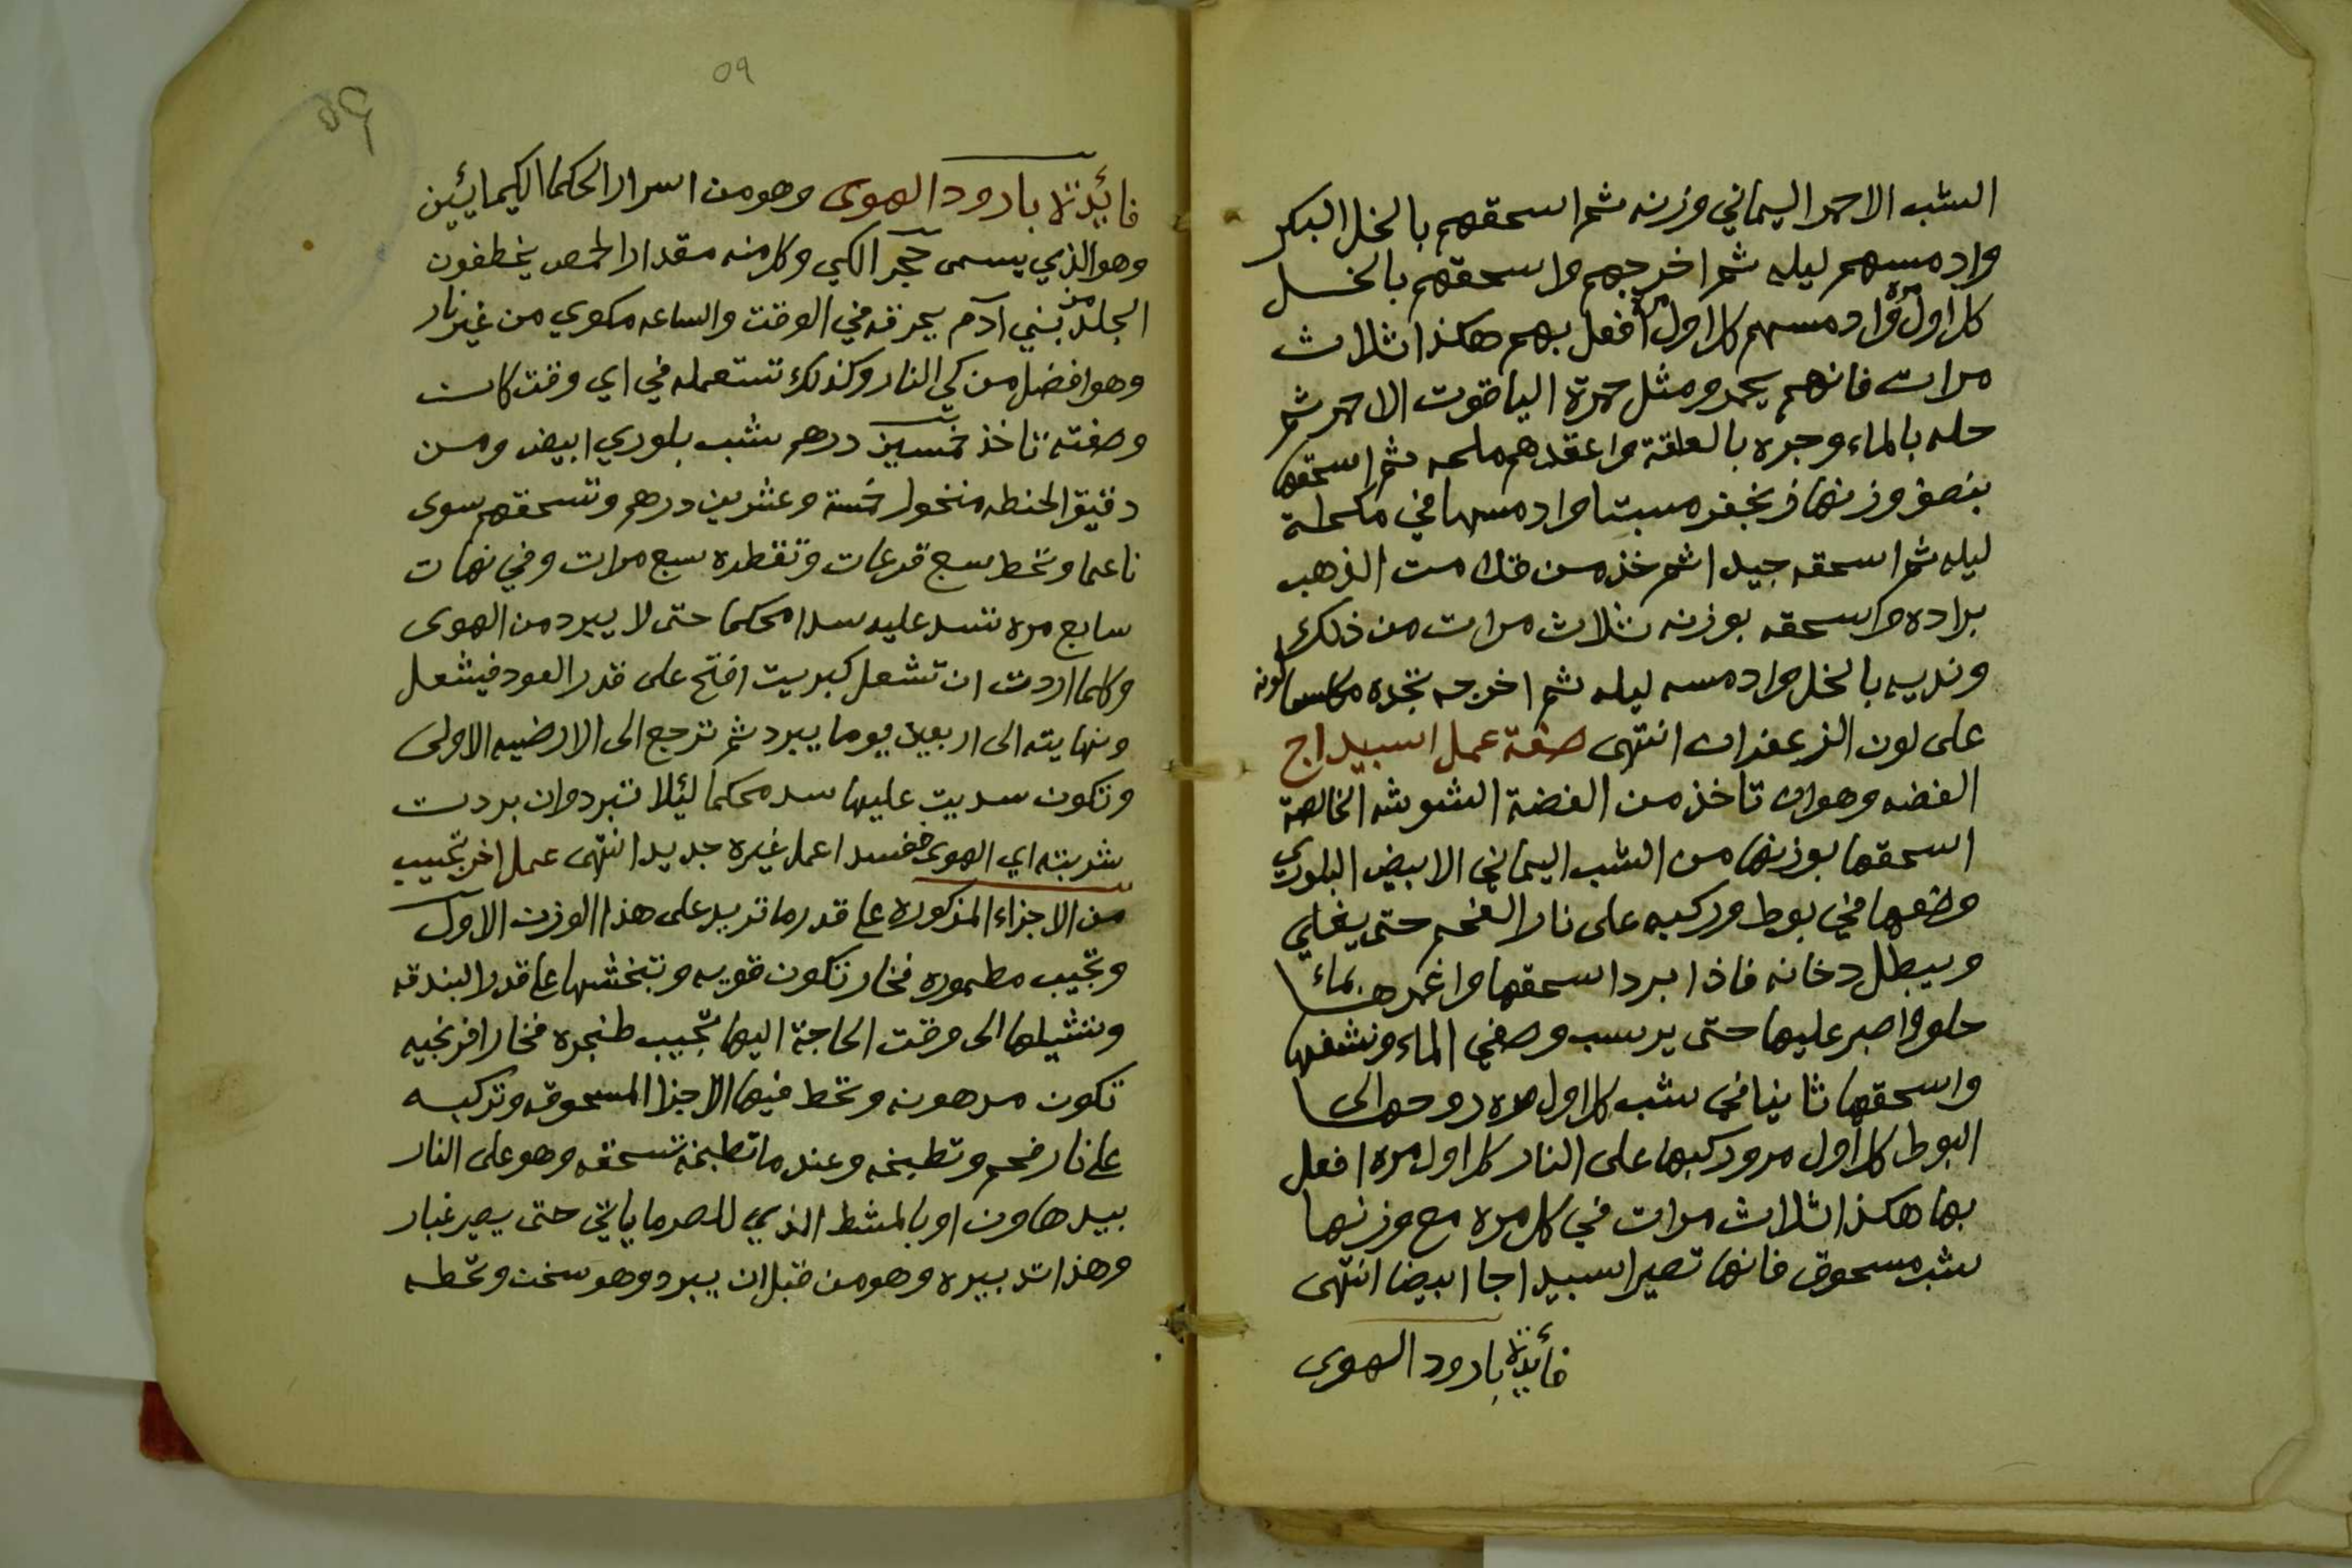 الشب الاحمر اليماني وزنه ثم اسحقهم بالخل البكر
وادمسهم ليله ثم اخرجهم واسحقهم بالخل
كل اول مره وادمسهم كل اول مره افعل بهم هكذا ثلاث
مرات فانهم يحمرو مثل حمرة الياقوت الاحمر ثم
حله بالماء وجره بالعلقة واعقدهم ملحه ثم اسحقها
بنصف وزنها زنجفر مبتا وادمسها في مكحلة
ليله ثم اسحقه جيدا ثم خذ من الذهب
براده واسحقه بوزنه ثلاث مرات من ذلك
ونديه بالخل وادمسه ليله ثم اخرجه تجده مكلسا لونه
على لون الزعفران انتهى صفة عمل اسبيداج
الفضه وهو ان تاخذ من الفضة الشوشه الخالصة
اسحقها بوزنها من الشب اليماني الابيض البلوري
وضعها في بوط وركبه على نار الفحم حتى يغلي
ويبطل دخانه فاذا برد اسحقها واغمرها بماء
حلو واصبر عليها حتى يرسب وصفي الماء ونشفها
واسحقها ثانيا في شب كل اول مره روحها الى
البوط كل اول مرو ركبها على النار كل اول مره افعل
بها هكذا ثلاث مرات في كل مره مع وزنها
شب مسحوق فانها تصير اسبيداجا ابيضا انتهى
فائدة بارود الهوى
٥٩
٥٩
فائدة بارود الهوى وهو من اسرار الحكما الكيمائين
وهو الذي يسمى حجر الكي وكل منه مقدار الحمص يخطفون
الجلد من بني آدم يحرقه في الوقت والساعه مكوي من غير نار
وهو افضل من كي النار وكذلك تستعمله في اي وقت كان
وصفته تاخذ خمسين درهم شب بلوري ابيض ومن
دقيق الحنطه منخول خمسة وعشرين درهم وتسحقهم سوى
ناعما وتحط سبع قرعات وتقطره سبع مرات وفي نهات
سابع مره تسد عليه سدا محكما حتى لا يبرد من الهوى
وكلما اردت ان تشعل كبريت افتح على قدر العود فيشعل
ونهايته الى اربعين يوما يبرد ثم ترجع الى الارضيه الاولى
وتكون سديت عليها سد محكما لئلا تبرد وان بردت
شربته اي الهوى ففسد اعمل غيره جديد انتهى عمل اخر تجيب
من الاجزاء المذكوره على قدر ما تريد على هذا الوزن الاول
وتجيب مطموره فخار تكون قويه وتبخشها على قدر البندقه
وتشيلها الى وقت الحاجة اليها تجيب طنجره فخار افرنجيه
تكون مدهونه وتحط فيها الاجزا المسحوقه وتركبه
على نار فحم وتطبخه وعند ما تطبخه تسحقه وهو على النار
بيد هاون او بالمشط الذي للصرماياتي حتى يصير غبار
وهذا تدبيره وهو من قبل ان يبرد وهو سخن وتحطه